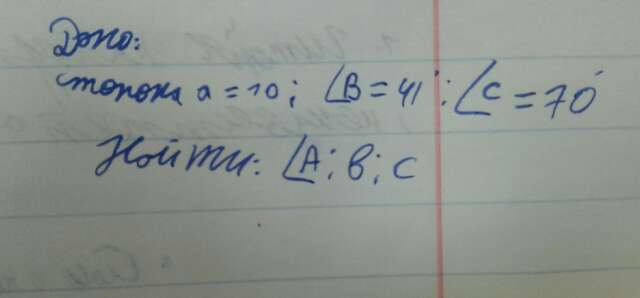 Дано:
сторона a = 10; ∠B = 41°; ∠C = 70°
Найти: ∠A; в; с